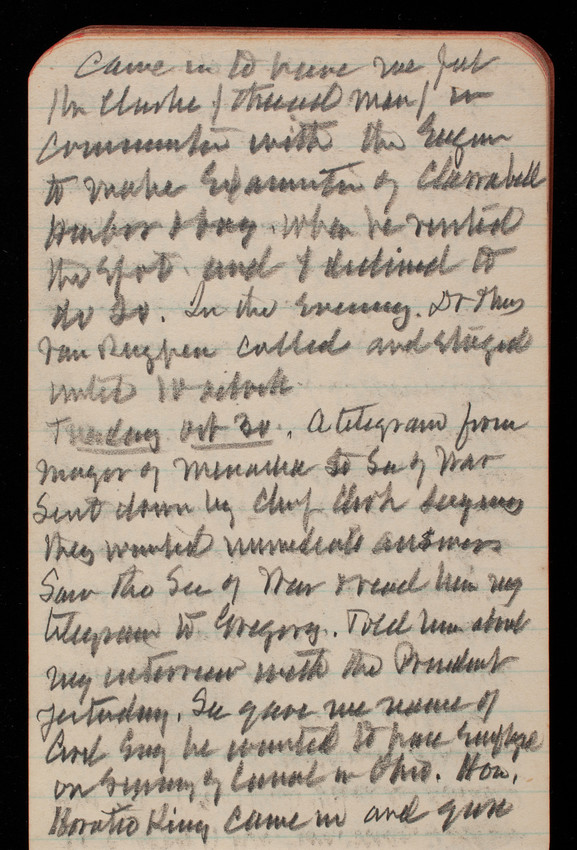 Came in to have me put
Mr Clarke (thread man) in
communctn with the Engrs
to make Examntn of
Harbor & bay. When he visited
the Spot. and I declined to
do so. In the Evening. Dr Thos
Van Reyppen called and stayed
until 10 oclock
Tuesday Oct 30. A telegram from
Mayor of Menasha to Sec of War
Sent down by Chief Clerk saying
they wanted immediate answer
Saw the Sec of War & read him my
telegram to Gregory. Told him about
my interview with the President
yesterday. Sec gave me name of
Civil Eng he wanted to have Employed
on Survey of Canal in Ohio. Hon.
Horatio King came in and gave